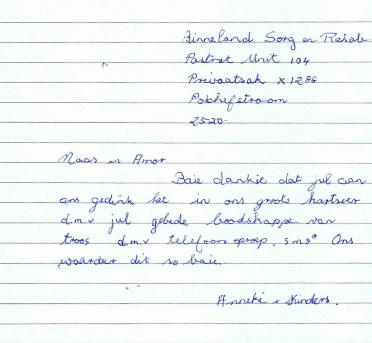 Binneland Sorg en Rehab
Postnet Unit 104
Privaatsak X1288
Potchefstroom
2520
Naas en Amor
Baie dankie dat jul aan
ons gedink het in ons groot hartseer
d.m.v jul gebede boodskappe van
troos d.m.v telefoon oproep, sms. Ons
waardeer dit so baie.
Anneke & Kinders.